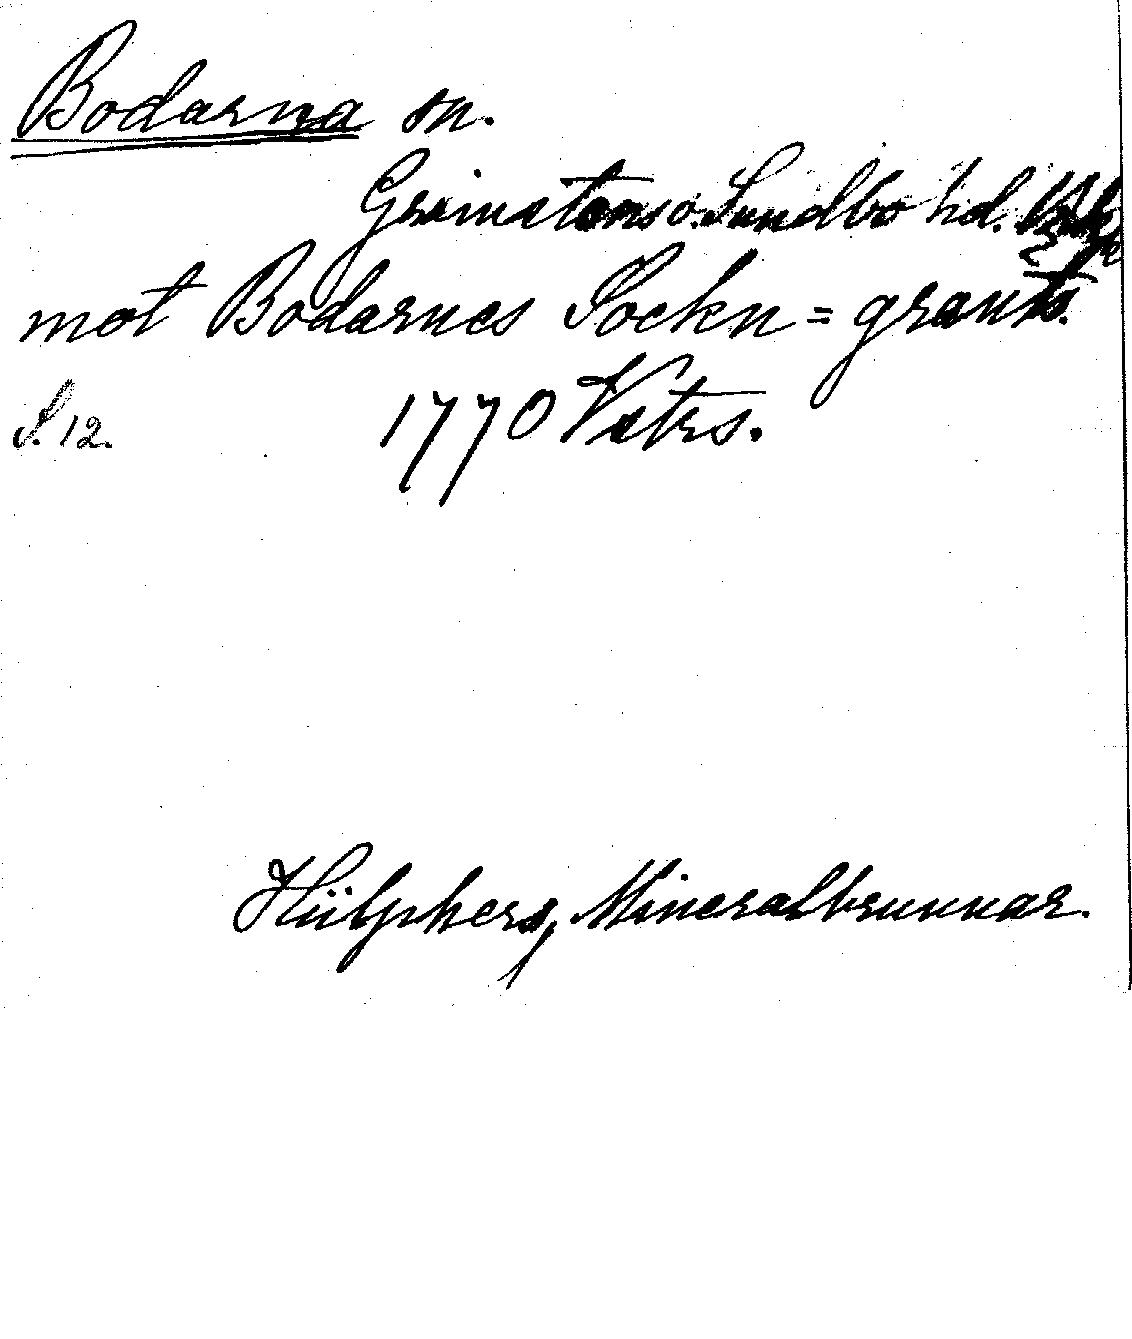 Bodarna sn.
Grimstens o. Sundbo hd.
mot Bodarnes Sockn = gränts.
S. 12. 1770 Vstrs.
Hülphers, Mineralbrunnar.